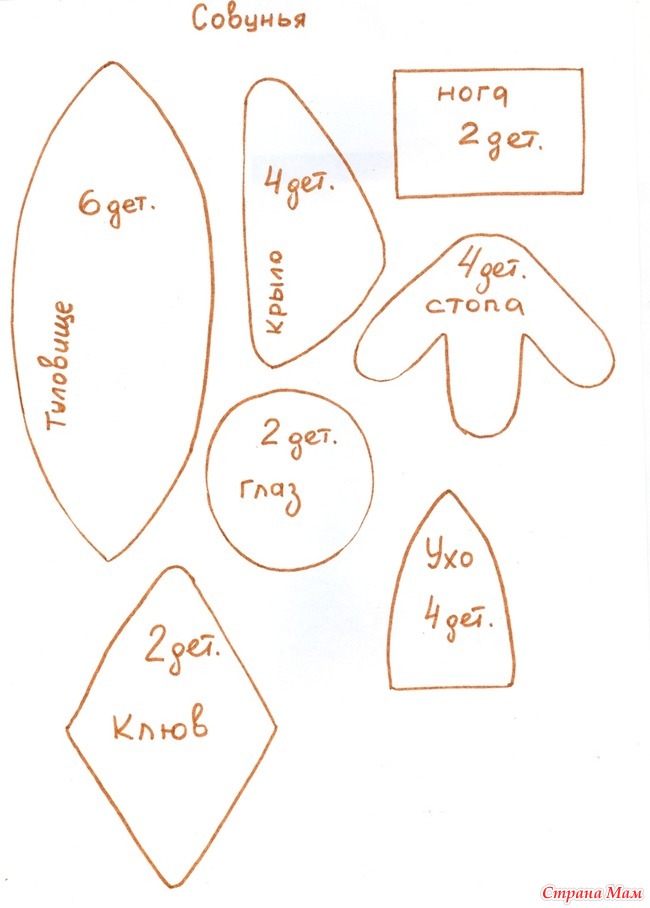 Совунья
нога
2 дет.
4 дет.
крыло
6 дет.
Туловище
4 дет.
стопа
2 дет.
глаз
Ухо
4 дет.
2 дет.
Клюв
Страна Мам